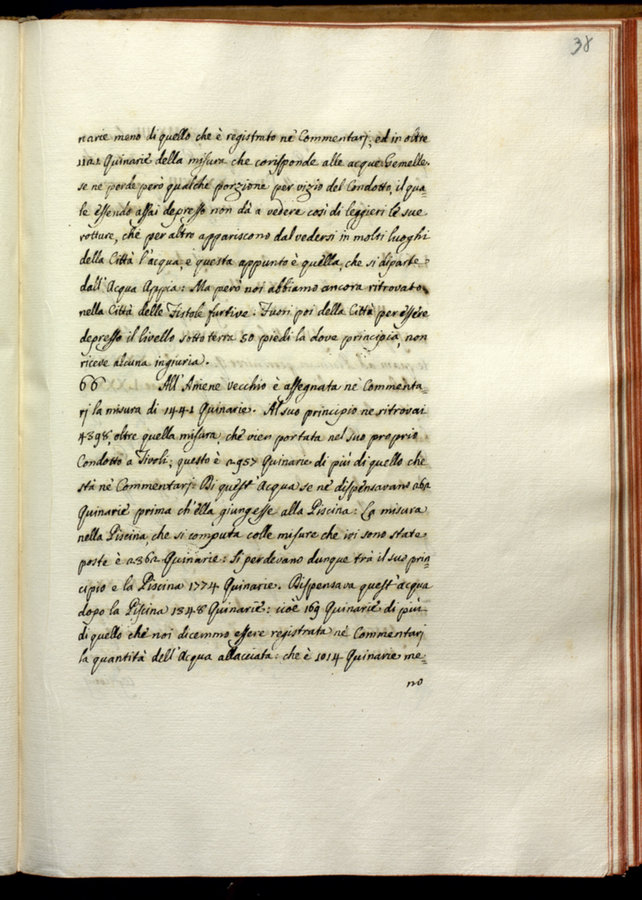 38
narie meno di quello che è registrato nè Commentarj, ed in oltre
1121 Quinarie della misura che corisponde alle acque Gemelle.
se ne perde però qualche porzione per vizio del Condotto, il qua-
le èssendo assai depresso non dà a vedere così di leggieri le sue
rotture, che per altro appariscono dal vedersi in molti luoghi
della Città l'acqua, e questa appunto è quella, che si diparte
dall'Acqua Appia: Ma però noi abbiamo ancora ritrovato
nella Città delle Fistole furtive. Fuori poi della Città per èssere
depresso il livello sotto terra 50 piedi la dove principia, non
riceve alcuna ingiuria.
66 All'Aniene vecchio è assegnata nè Commenta-
rj la misura di 1441 Quinarie. Al suo principio ne ritrovai
4398, oltre quella misura, che vien portata nel suo proprio
Condotto a Tivoli; questo è 2957 Quinarie di più di quello che
stà nè Commentarj: Di quest'Acqua se ne dispensavano 262
Quinarie prima ch'ella giungesse alla Piscina: La misura
nella Piscina, che si computa colle misure che ivi sono state
poste è 2362 Quinarie: Si perdevano dunque trà il suo prin-
cipio e la Piscina 1774 Quinarie. Dispensava quest'acqua
dopo la Piscina 1348 Quinarie: cioè 169 Quinarie di più
di quello che noi dicemmo essere registrata nè Commentarj
la quantità dell'Acqua allacciata: che è 1014 Quinarie me-
no